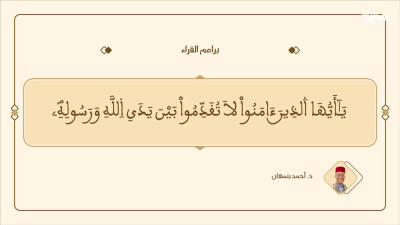 براعم القراء
يَٰٓأَيُّهَا اَ۬لذِينَ ءَامَنُواْ لَا تُقَدِّمُواْ بَيْنَ يَدَيِ اِ۬للَّهِ وَرَسُولِهِۦ
د. أحمد بنمهان